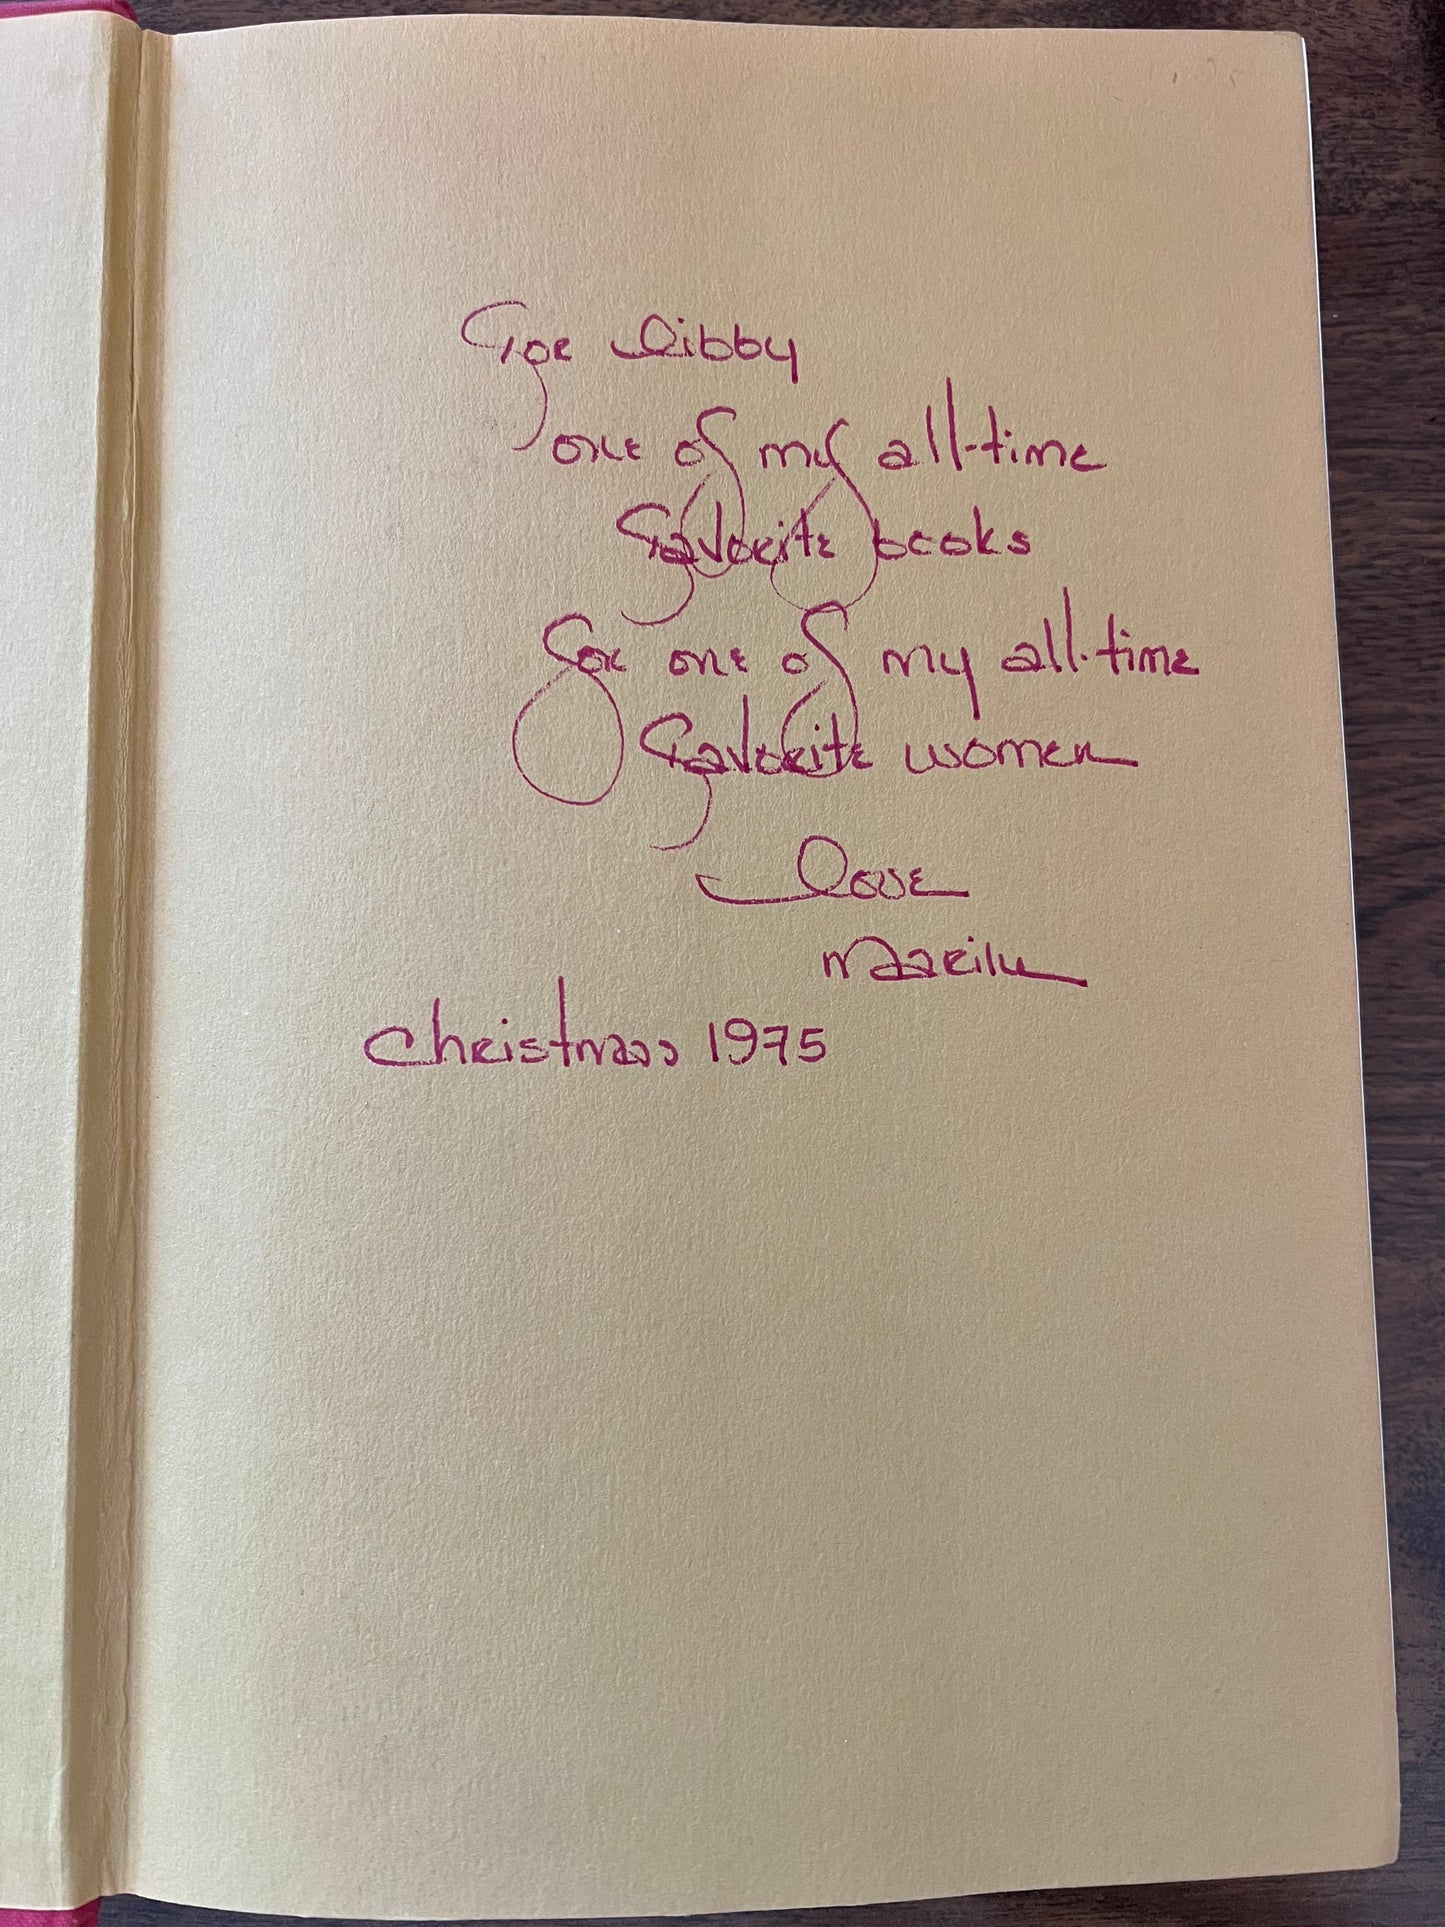 For Libby
one of my all-time
favorite books
for one of my all-time
favorite women
Love
Marilu
Christmas 1975